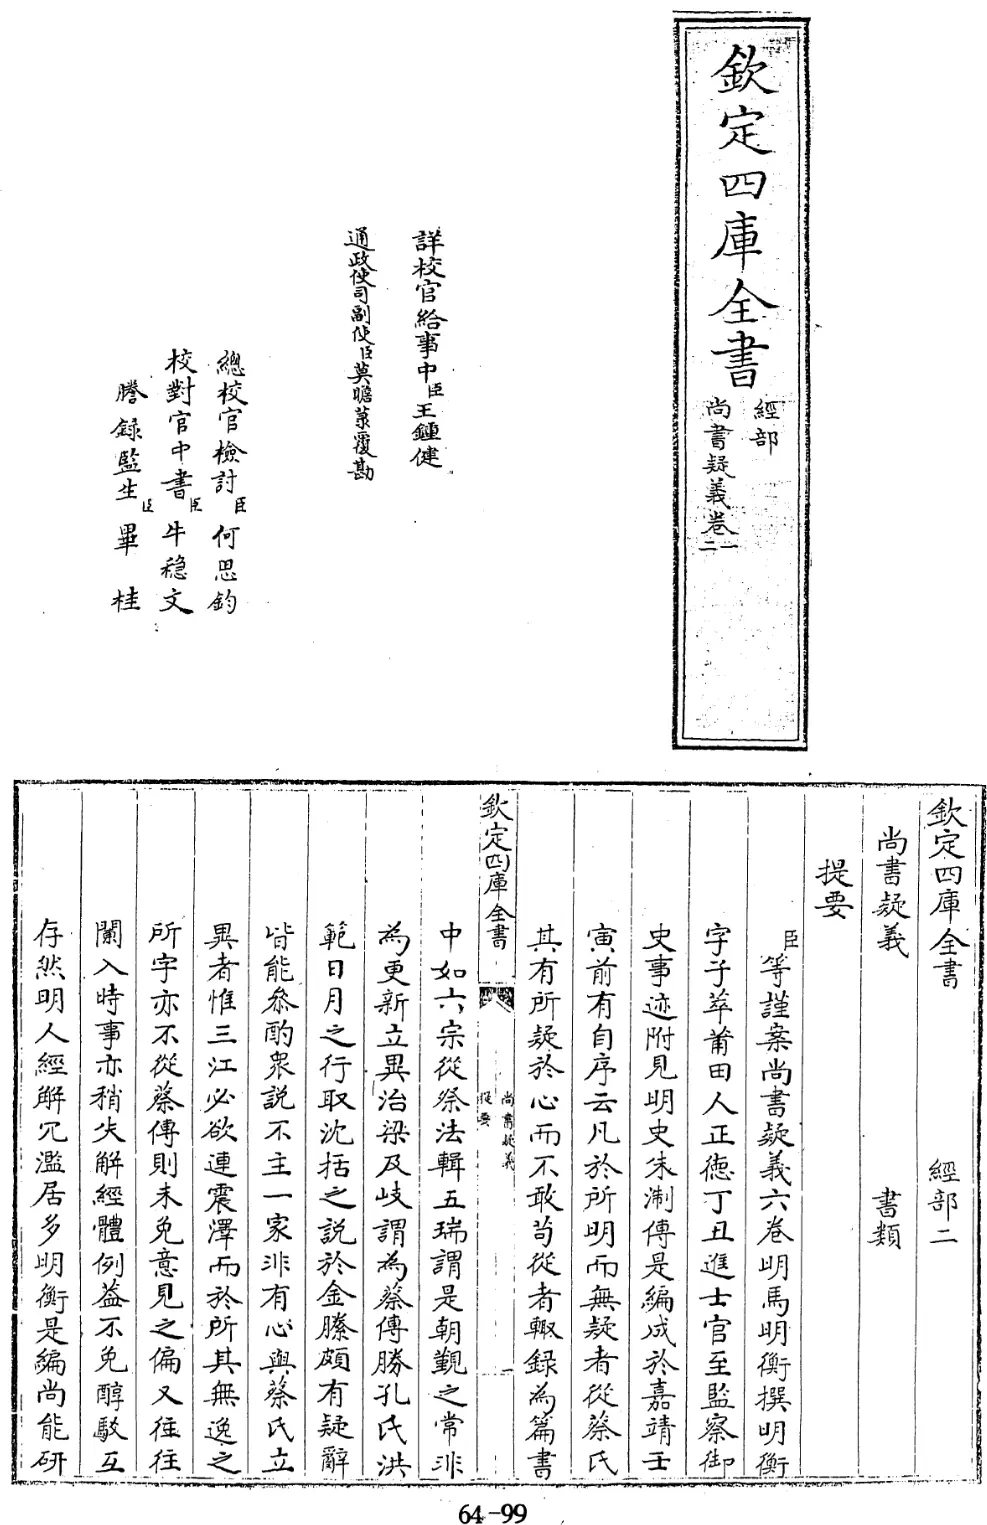 欽定四庫全書
經部
尚書疑義卷一
二
詳校官給事中臣王鍾健
通政使司副使臣莫瞻菉覆勘
總校官檢討臣何思鈞
校對官中書臣牛稳文
謄錄監生臣畢桂
欽定四庫全書 經部二
尚書疑義 書類
提要
臣等謹案尚書疑義六卷明馬明衡撰明衡
字子莘莆田人正德丁丑進士官至監察御
史事迹附見明史朱淛傳是編成於嘉靖壬
寅前有自序云凡於所明而無疑者從蔡氏
其有所疑於心而不敢茍從者輙録為篇書
欽定四庫全書
尚書疑義
提要
一
中如六宗從祭法輯五瑞謂是朝覲之常非
為更新立異治梁及岐謂為蔡傳勝孔氏洪
範日月之行取沈括之説於金縢頗有疑辭
皆能叅酌衆説不主一家非有心與蔡氏立
異者惟三江必欲連震澤而於所其無逸之
所字亦不從蔡傳則未免意見之偏又往往
闌入時事亦稍失解經體例蓋不免醇駁互
存然明人經解冗濫居多明衡是編尚能研
64-99